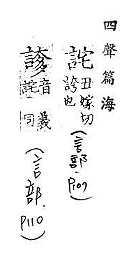 四聲篇海
詫丑嫁切
誇也(言部.P107)
謲音義
詫同(言部.P110)